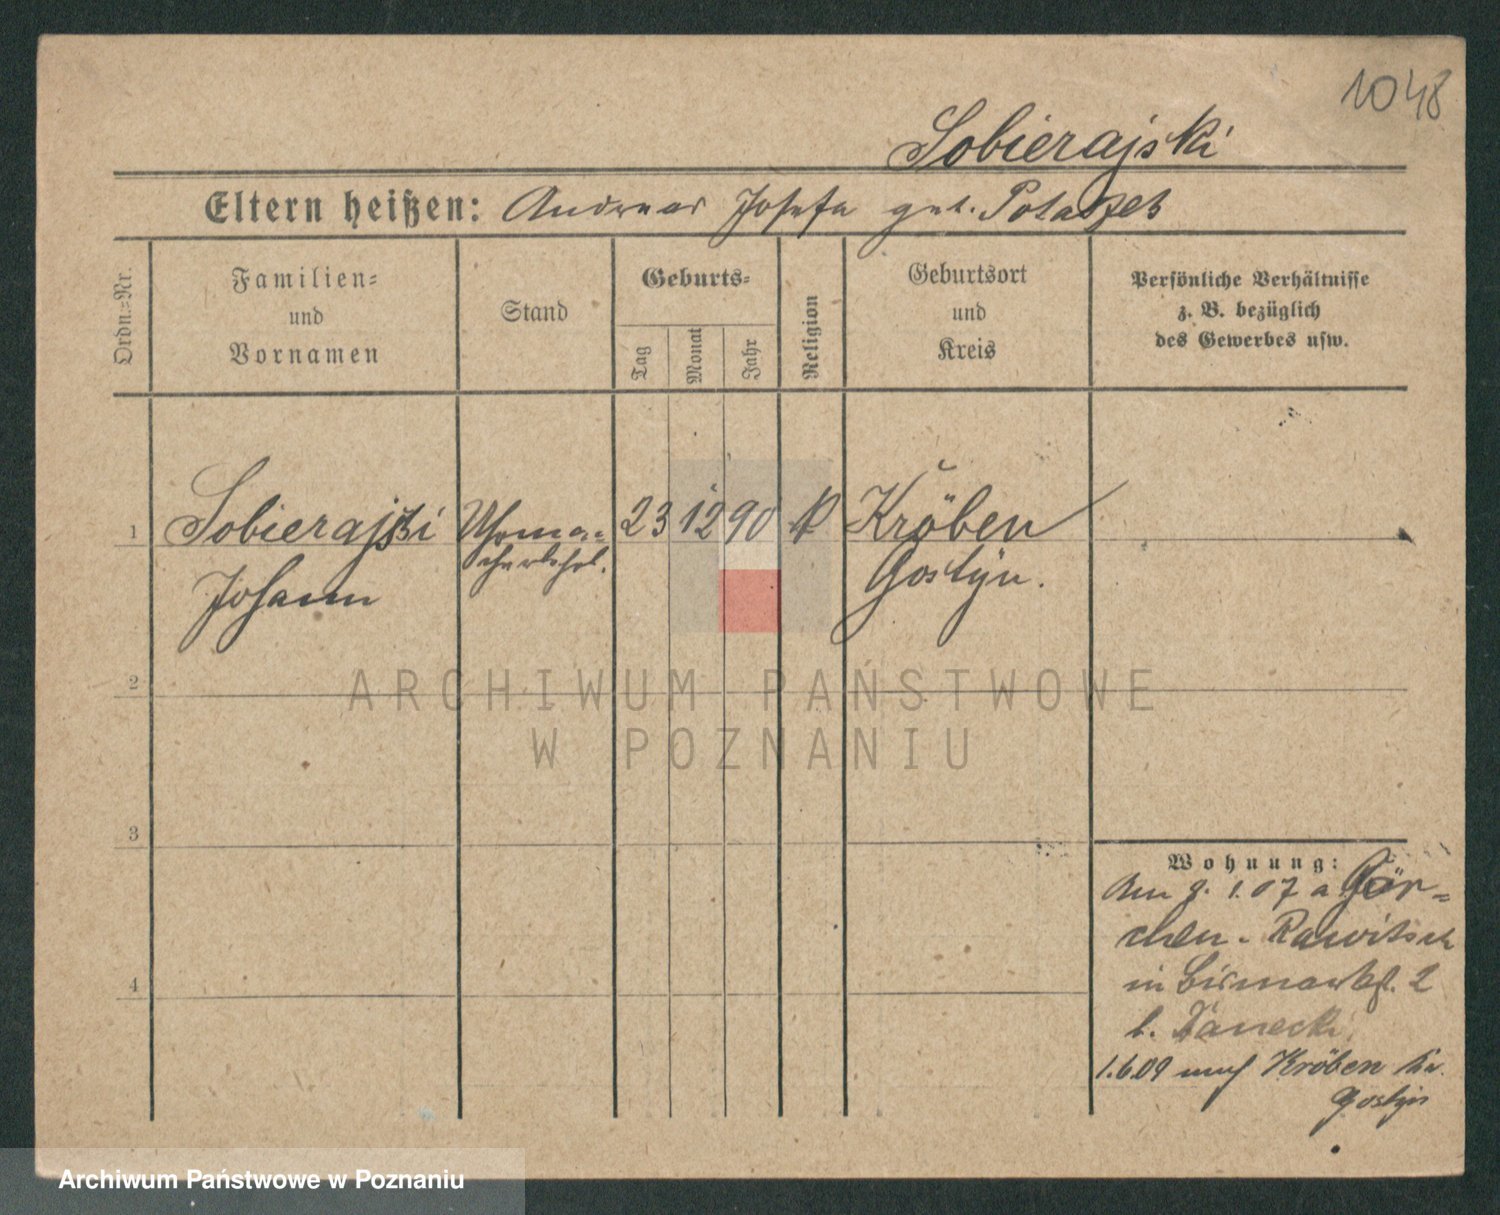 1048
Sobierajski
Eltern heißen: Andreas Josefa geb.
Ordn.-Nr.
Familien-
und
Vornamen
Stand
Geburts-
Tag
Monat
Jahr
Religion
Geburtsort
und
Kreis
Persönliche Verhältnisse
z. B. bezüglich
des Gewerbes usw.
1 Sobierajski Uhrma- 23 12 90 k Kröben
Johann cherlehrl. Gostyn.
2
ARCHIWUM PAŃSTWOWE
W POZNANIU
3
Wohnung:
1.07 a Gör-
chen - Rawitsch
in Bismarkst. 2
b. Janecki
4
1.6.09 nach Kröben Kr.
Gostyn
Archiwum Państwowe w Poznaniu